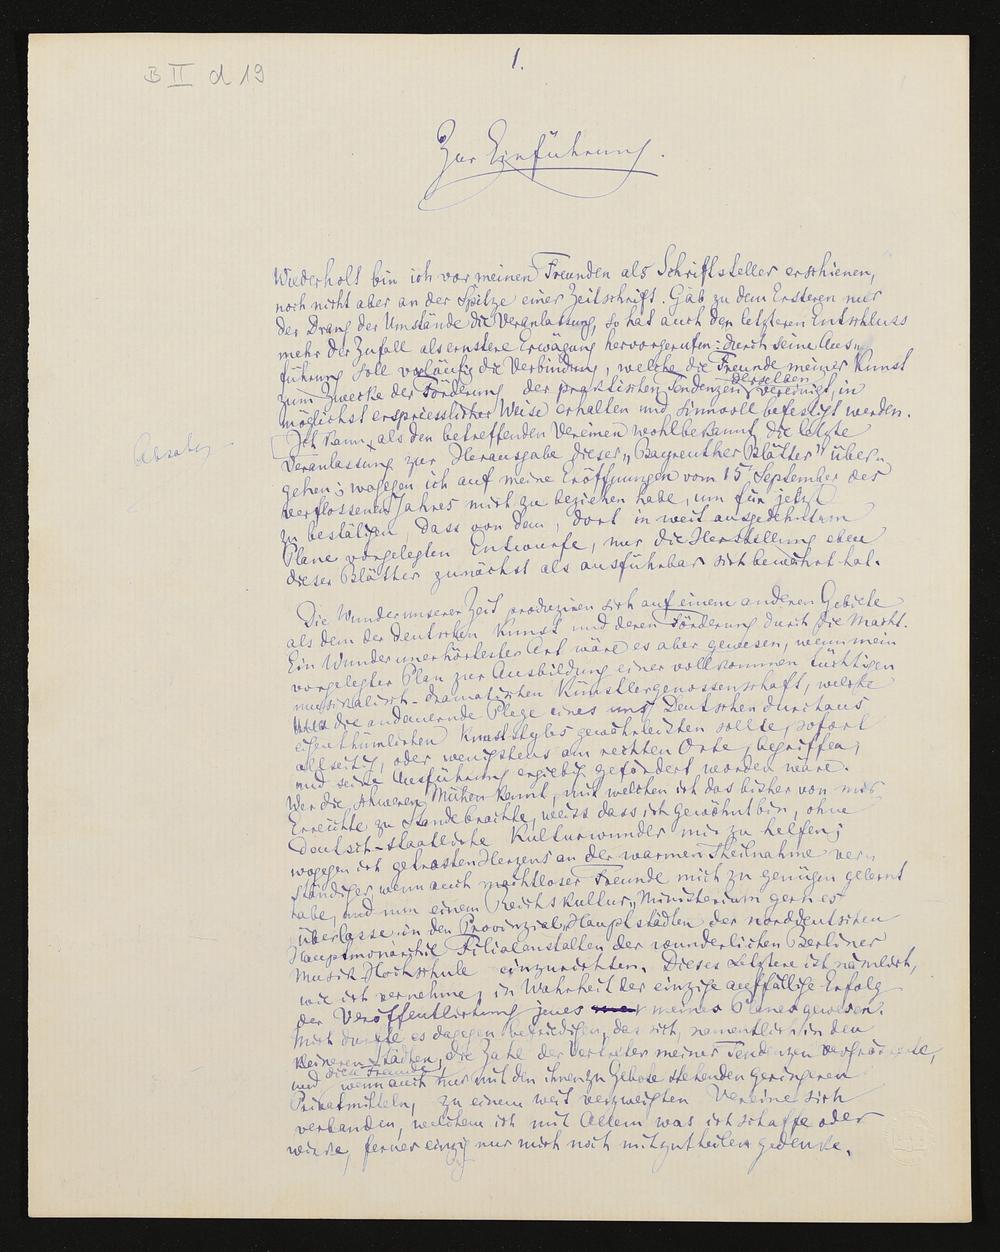 B II d 19
1.
Zur Einführung.
Wiederholt bin ich vor meinen Freunden als Schriftsteller erschienen,
noch nicht aber an der Spitze einer Zeitschrift. Gab zu dem Ersteren mir
der Drang der Umstände die Veranlassung, so hat auch den letzteren Entschluss
mehr der Zufall als ernstere Erwägung hervorgerufen: durch seine Aus-
führung soll vorläufig die Verbindung, welche die Freunde meiner Kunst
zum Zwecke der Förderung der praktischen Tendenzen derselben vereinigt, in
möglichst erspriesslicher Weise erhalten und sinnvoll befestigt werden.
Absatz
Ich kann, als den betreffenden Vereinen wohlbekannt, die letzte
Veranlassung zur Herausgabe dieser „Bayreuther Blätter" über-
gehen; wogegen ich auf meine Eröffnungen vom 15 September des
verflossenen Jahres mich zu beziehen habe, um für jetzt
zu bestätigen, dass von dem, dort in weit ausgedehntem
Plane vorgelegten Entwurfe, nur die Herstellung eben
dieser Blätter zunächst als ausführbar sich bewährt hat.
Die Wunder unserer Zeit produziren sich auf einem anderen Gebiete
als dem der deutschen Kunst und deren Förderung durch die Macht.
Ein Wunder unerhörtester Art wäre es aber gewesen, wenn mein
vorgelegter Plan zur Ausbildung einer vollkommen tüchtigen
musikalisch-dramatischen Künstlergenossenschaft, welche
die andauernde Pflege eines uns Deutschen durchaus
eigenthümlichen Kunststyles gewährleisten sollte, sofort
allseitig, oder wenigstens am rechten Orte, begriffen,
und seine Ausführung ergiebig gefördert worden wäre.
Wer die schweren Mühen kennt, mit welchen ich das bisher von mir
Erreichte zu Stande brachte, weiss dass ich gewöhnt bin, ohne
deutsch-staatliche Kulturwunder mir zu helfen;
wogegen ich getrosten Herzens an der warmen Theilnahme ver-
ständiger, wenn auch machtloser Freunde mich zu genügen gelernt
habe, und nun einem Reichskultur-Ministerium gern es
überlasse in den Provinzial-Hauptstädten der norddeutschen
Hauptmonarchie Filialanstalten der wunderlichen Berliner
Musik-Hochschule einzurichten. Dieses Letztere ist nämlich,
wie ich vernehme, in Wahrheit der einzige auffällige Erfolg
der Veröffentlichung jenes meines Planes gewesen.
Mich durfte es dagegen befriedigen, dass sich, namentlich in den
kleineren Städten, die Zahl der Vertreter meiner Tendenzen vergrösserte,
und diese Freunde, wenn auch nur mit den ihnen zu Gebote stehenden geringeren
Privatmitteln, zu einem weit verzweigten Vereine sich
verbanden, welchem ich mit Allem was ich schaffe oder
wirke, ferner einzig nur mich noch mitzutheilen gedenke.